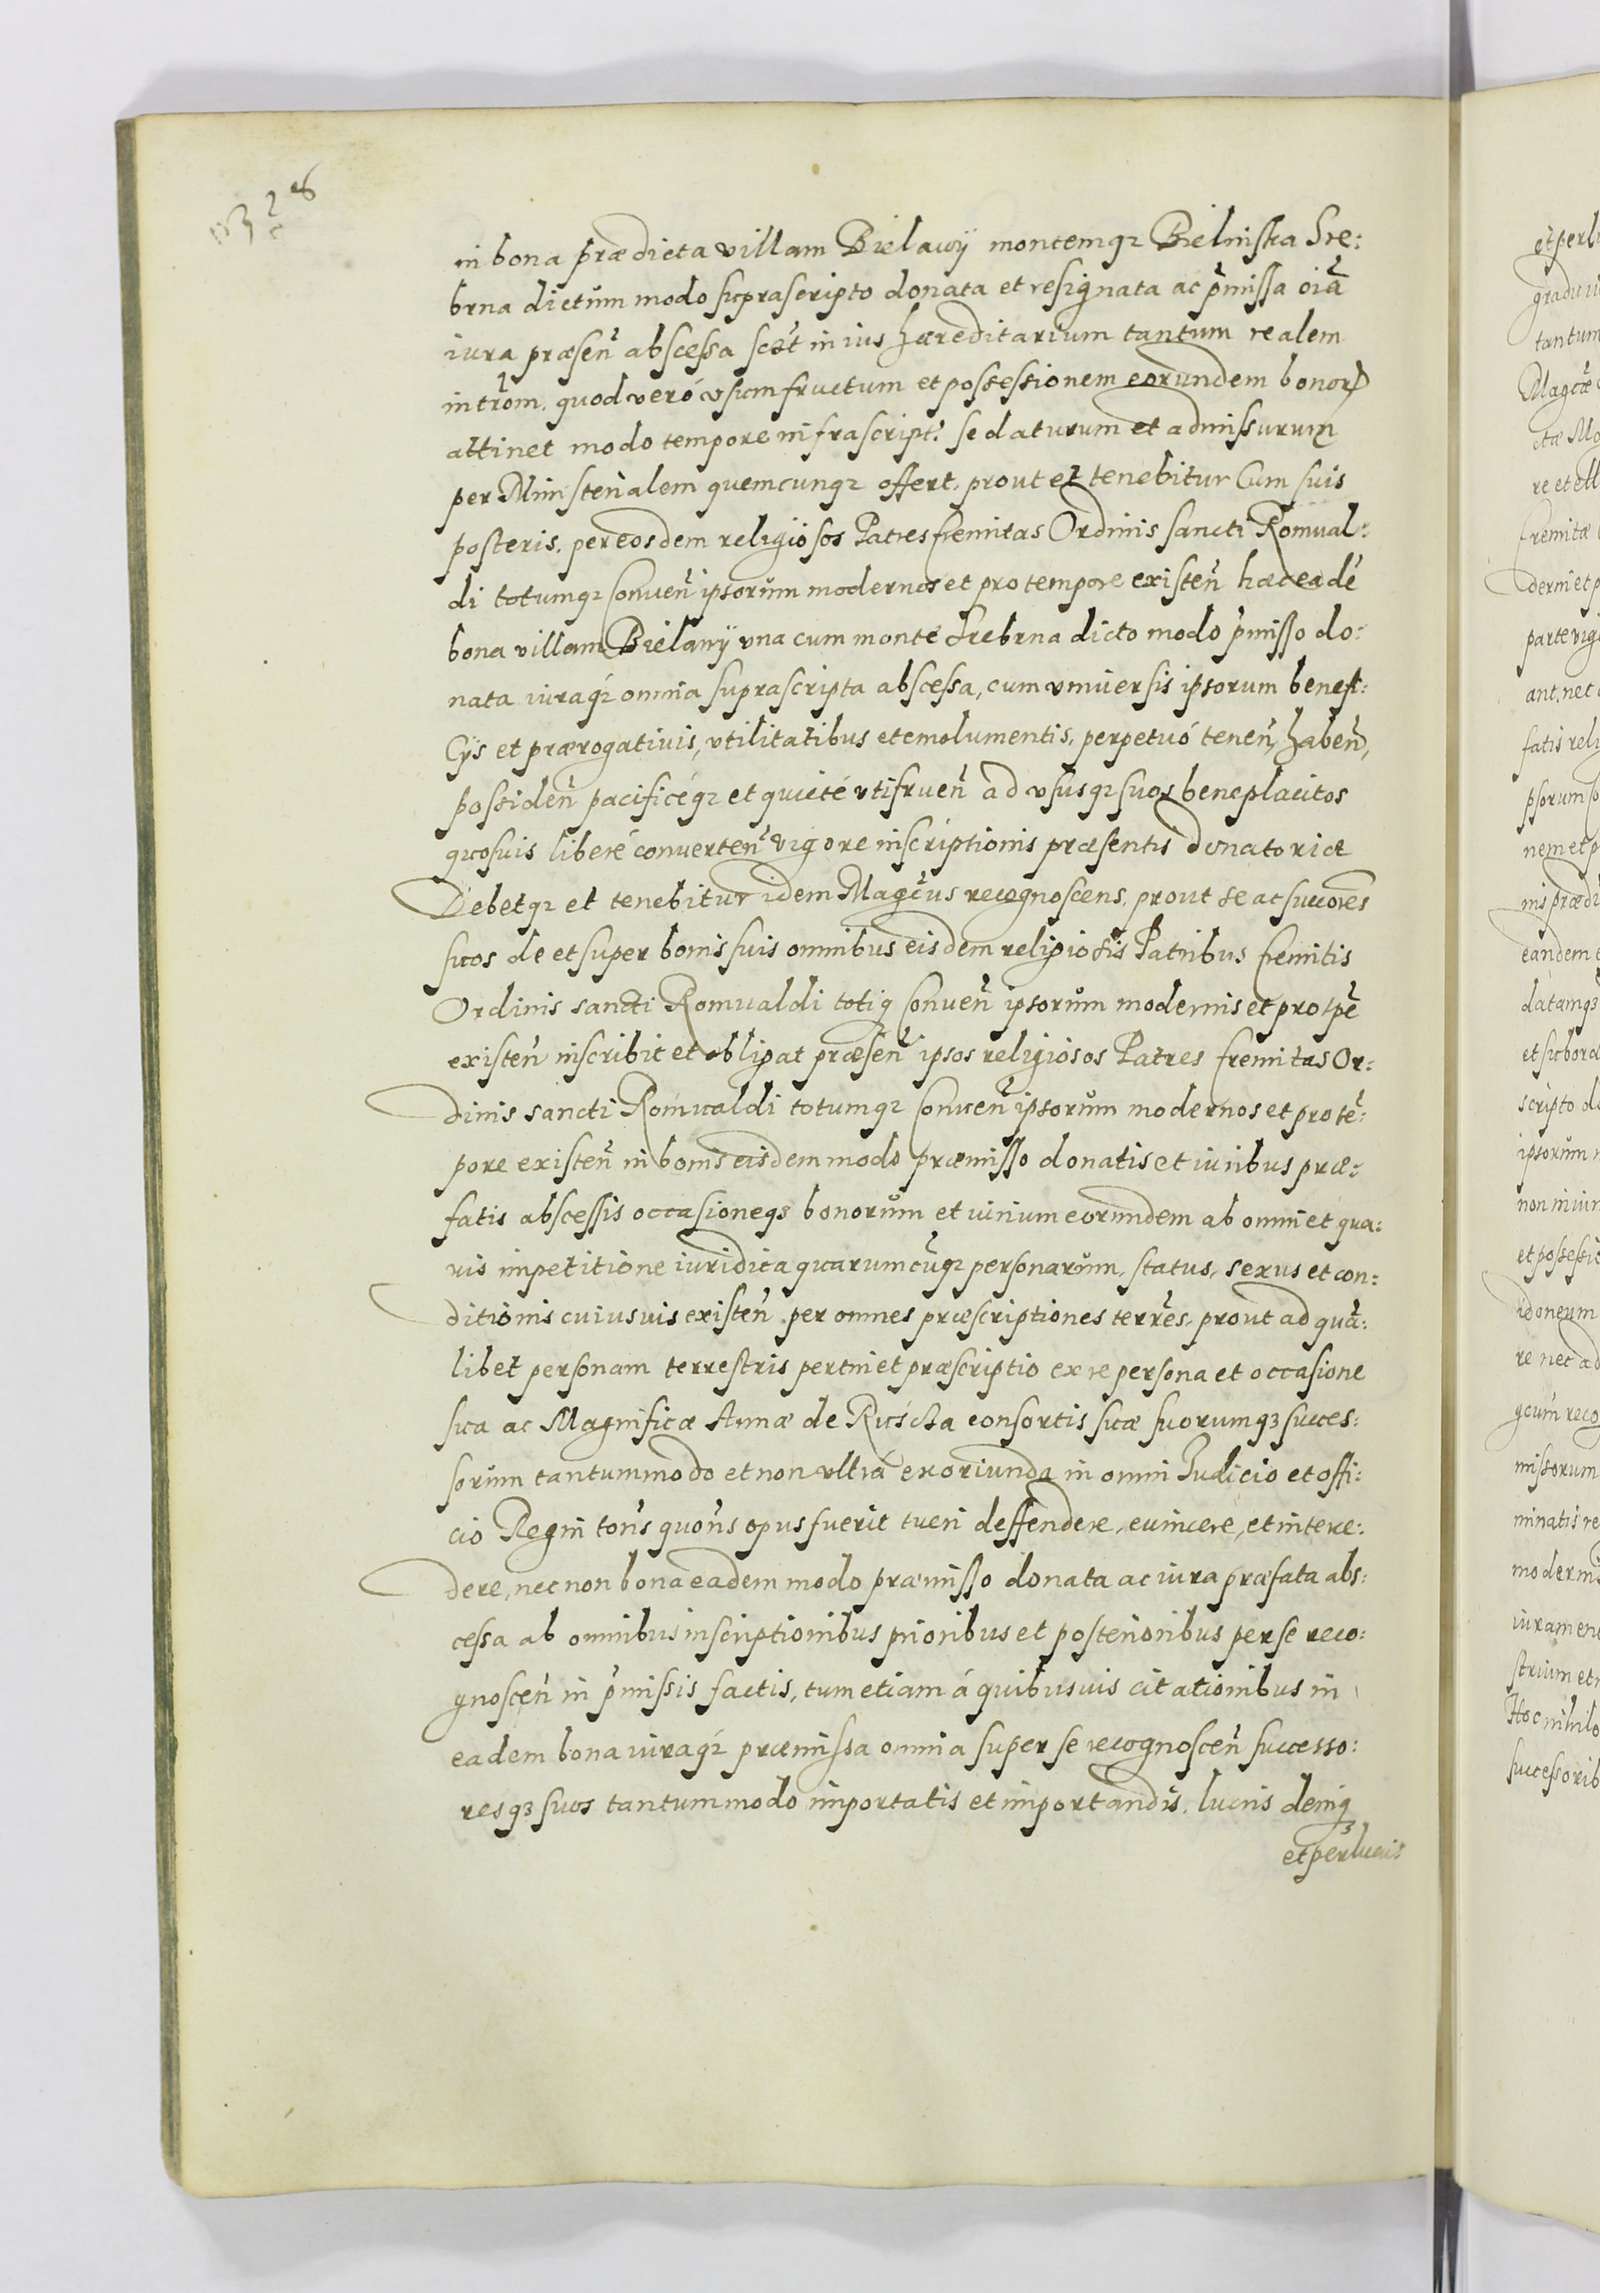 in bona prædicta villam Bielawÿ montemq3 Bielniska Sre:
brna dictum modo suprascripto donata et resignata ac p̃missa oĩa
iura præseñ abscessa scõt in ius hæreditarium tantum realem
intrõm. quod veró vsumfructum et possessionem eorundem bonor
attinet modo tempore infrascript: se daturum et admissurum
per Ministerialem quemcunq3 offert. prout et tenebitur Cum suis
posteris. per eosdem religiosos Patres Eremitas Ordinis sancti Romual:
di totumq3 Conueñ ipsorum modernos et pro tempore existeñ hæc eadẽ
bona villam Bielanÿ vna cum monte Srebrna dicto modo p̃misso do:
nata iuraq3 omnia suprascripta abscessa, cum vniuersis ipsorum benefi:
cÿs et prærogatiuis, vtilitatibus et emolumentis, perpetuó teneñ, habeñ,
possideñ pacificéq3 et quieté vtifrueñ ad vsusq3 suos beneplacitos
quosuis liberé conuerteñ vigore inscriptionis præsentis donatoriæ
Debetq3 et tenebitur idem Magc̃us recognoscens, prout se ac succores
suos de et super bonis suis omnibus eisdem religiosis Patribus Eremitis
Ordinis sancti Romualdi totiq Conueñ ipsorum modernis et pro tpẽ
existeñ inscribit et obligat præseñ ipsos religiosos Patres Eremitas Or:
dinis sancti Romualdi totumq3 Conueñ ipsorum modernos et pro tẽ:
pore existeñ in bonis eisdem modo præmisso donatis et iuribus præ:
fatis abscessis occasioneq3 bonorum et iurium eorundem ab omni et qua:
uis impetitione iuridica quarumcũq3 personarum, status, sexus et con:
ditionis cuiusuis existeñ per omnes præscriptiones terrẽs, prout ad quã:
libet personam terrestris pertinet præscriptio ex re persona et occasione
sua ac Magnificæ Annæ de Ruścza consortis suæ suorumq3 succes:
sorum tantummodo et non vltrá exoriunda in omni Judicio et offi:
cio Regni tot̃s quot̃s opus fuerit tueri deffendere, euincere, et interce:
dere, nec non bona eadem modo præmisso donata ac iura præfata abs:
cessa ab omnibus inscriptionibus prioribus et posterioribus per se reco:
gnosceñ in p̃missis factis, tum etiam á quibusuis citationibus in
eadem bona iuraq3 præmissa omnia super se recognosceñ successo:
resq3 suos tantummodo importatis et importandis. lucris deniq3
et perlucris